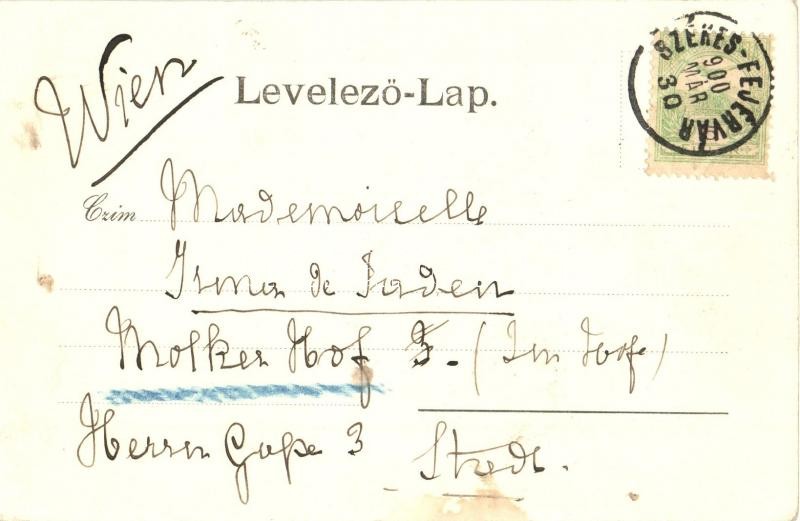 Wien
Levelező-Lap.
SZÉKES-FEJÉRVÁR
900
MÁR
30
Czim Mademoiselle
Irma de Jaden
Mölker Hof 5. (Im Hofe)
Herrn Gasse 3
Stadt.